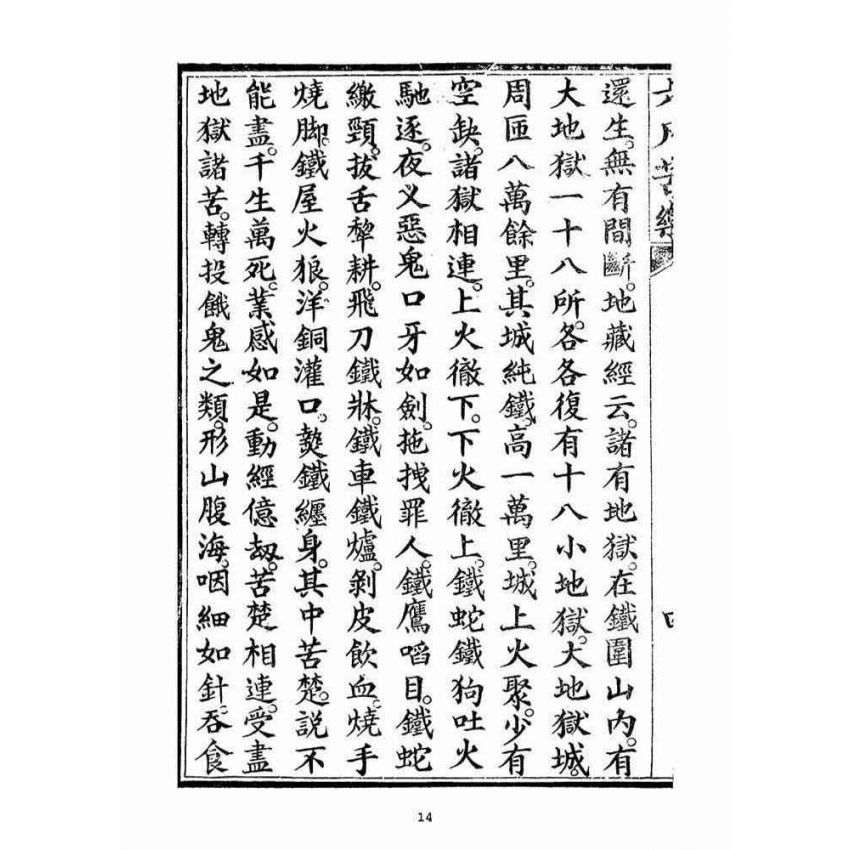 還生。無有間斷。地藏經云。諸有地獄。在鐵圍山內。有
大地獄一十八所。各各復有十八小地獄。大地獄城。
周匝八萬餘里。其城純鐵。高一萬里。城上火聚。少有
空缺。諸獄相連。上火徹下。下火徹上。鐵蛇鐵狗吐火
馳逐。夜义惡鬼口牙如劍。拖拽罪人。鐵鷹啗目。鐵蛇
繳頸。拔舌犂耕。飛刀鐵牀。鐵車鐵爐。剝皮飲血。燒手
燒脚。鐵屋火狼。洋銅灌口。熱鐵纒身。其中苦楚。說不
能盡。千生萬死。業感如是。動經億劫。苦楚相連。受盡
地獄諸苦。轉投餓鬼之類。形山腹海。咽細如針。吞食
14